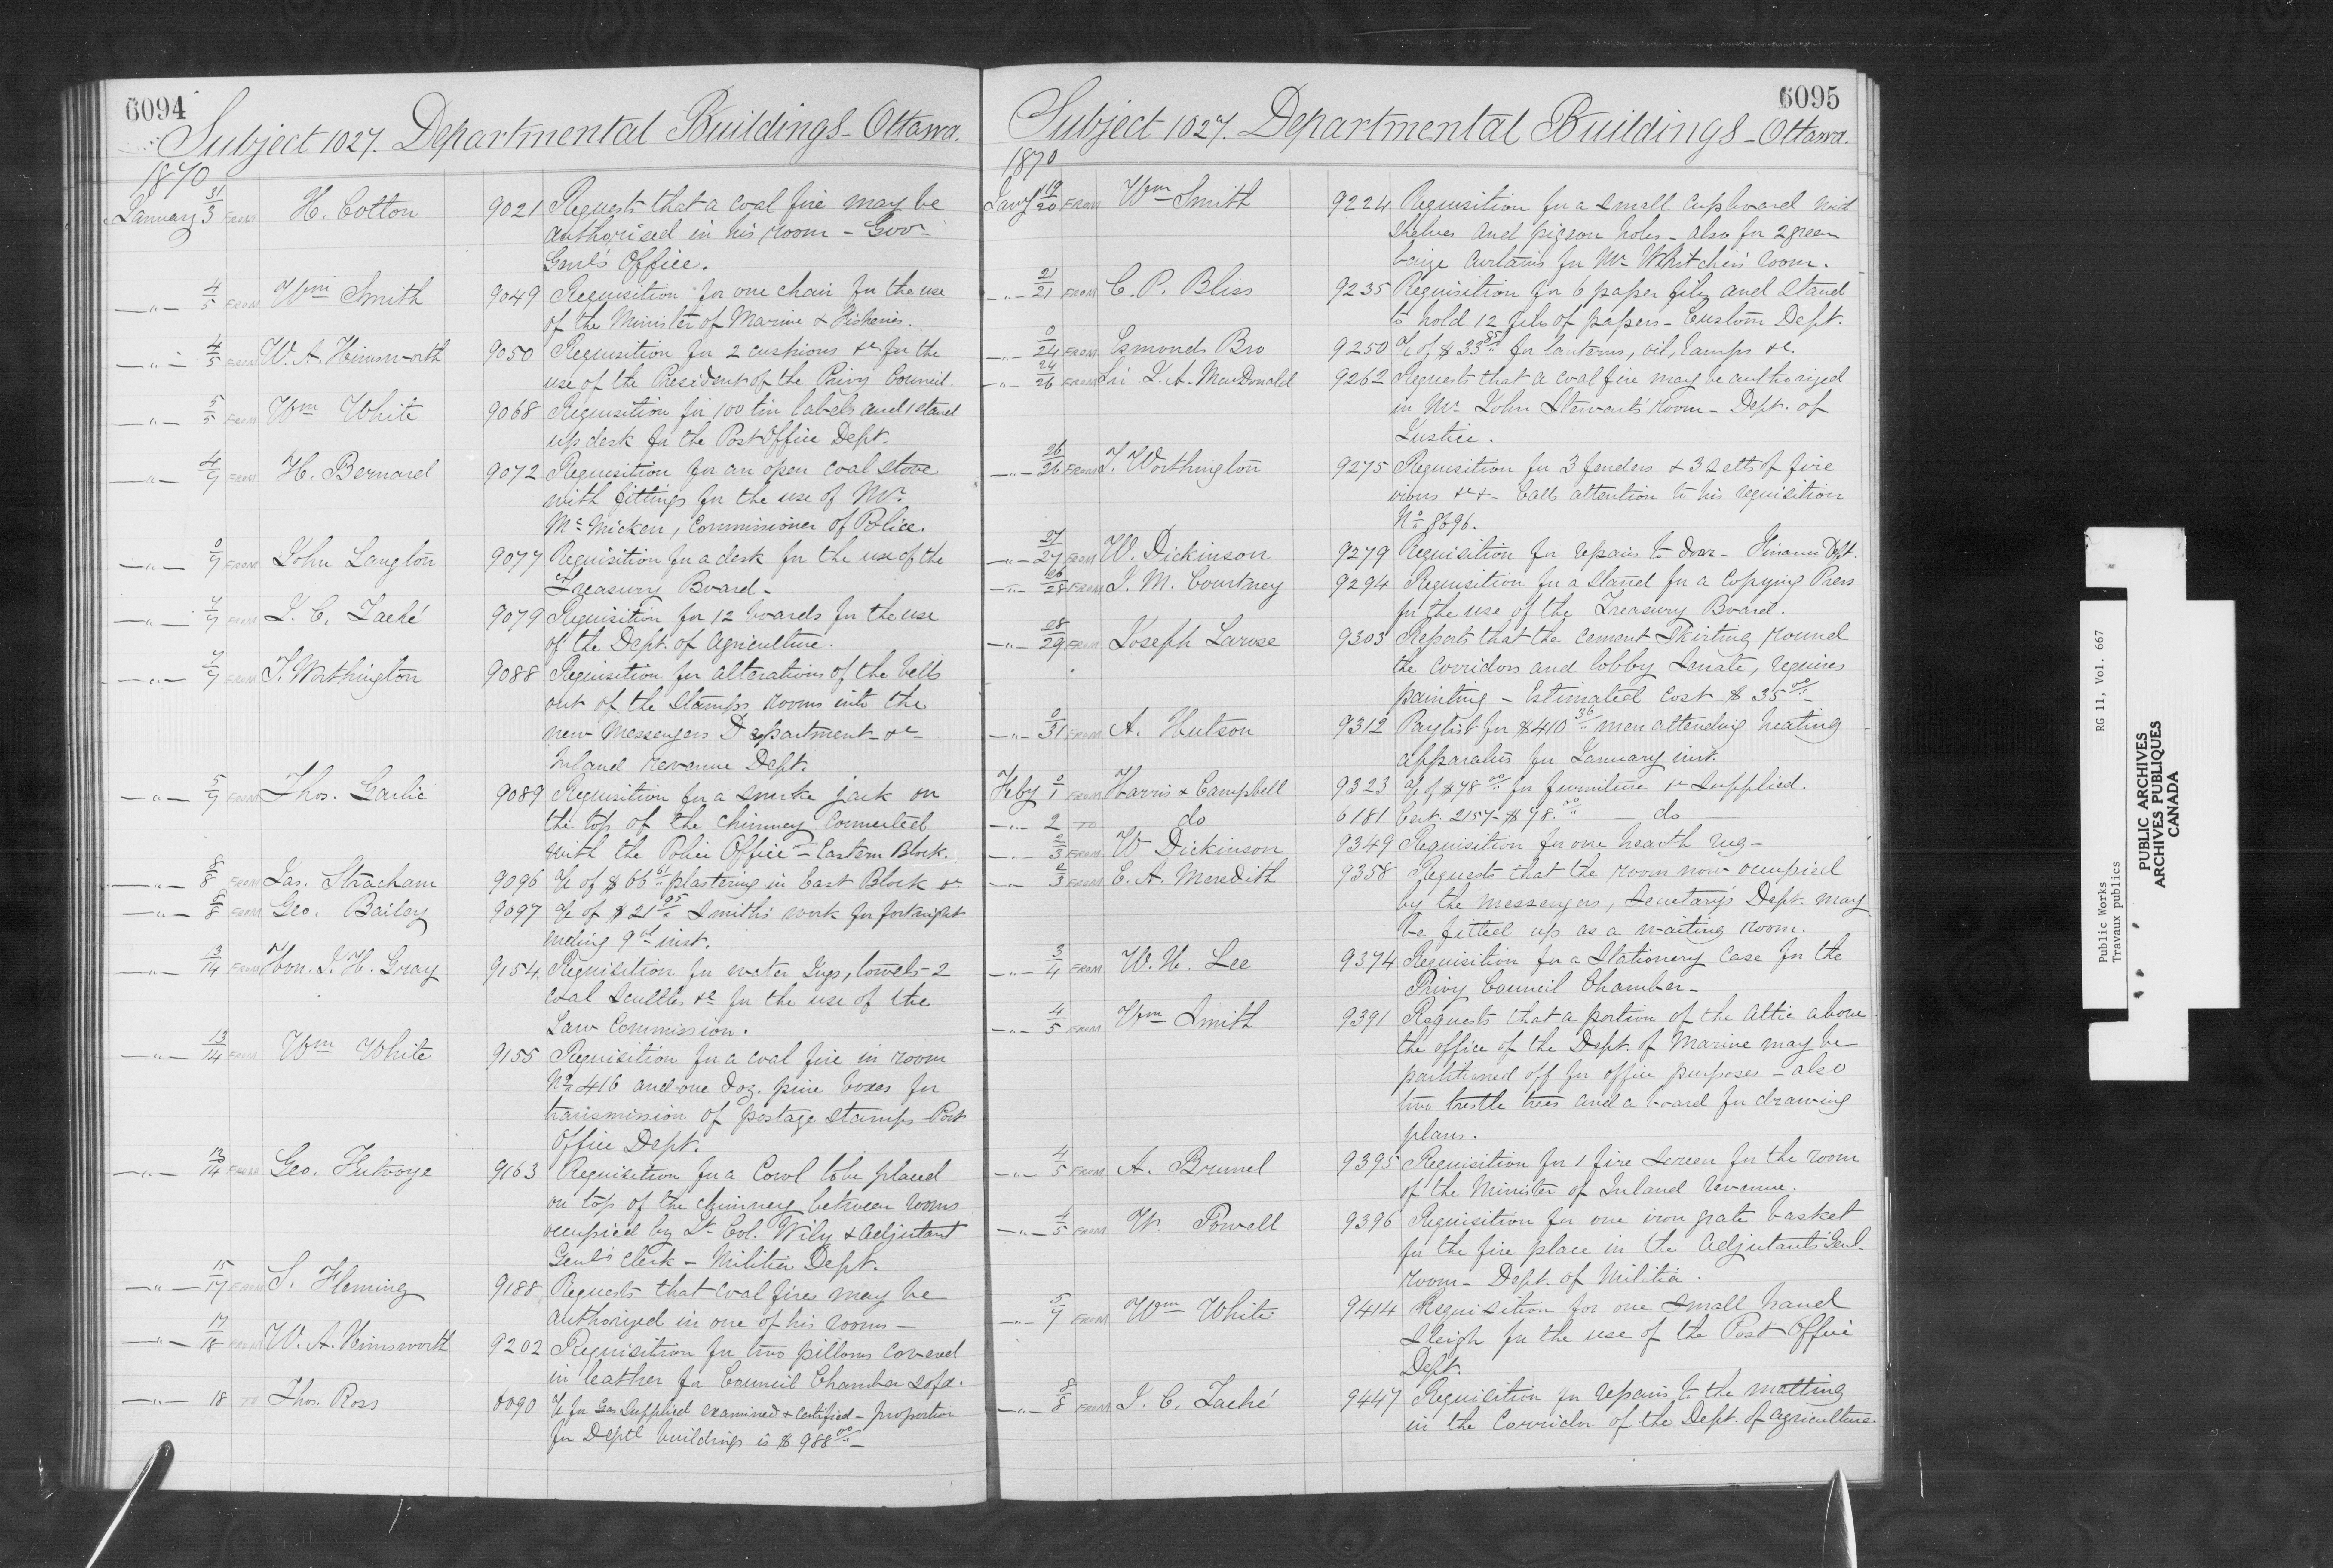 6094
Subject 1027. Departmental Buildings - Ottawa.
1870
January 31/3 FROM H. Cotton 9021 Requests that a coal fire may be
authorised in his room - Gov-
Genl's Office.
" 4/5 FROM Wm Smith 9049 Requisition for one chair for the use
of the Minister of Marine & Fisheries.
" 4/5 FROM W. A. Himsworth 9050 Requisition for 2 cushions &c for the
use of the President of the Privy Council.
" 5/5 FROM Wm White 9068 Requisition for 100 tin labels and 1 stand
up desk for the Post Office Dept.
" 4/7 FROM H. Bernard 9072 Requisition for an open coal stove
with fittings for the use of Mr.
McMicken, Commissioner of Police.
" 0/7 FROM John Langton 9077 Requisition for a desk for the use of the
Treasury Board -
" 7/7 FROM J. C. Taché 9079 Requisition for 12 boards for the use
of the Dept. of Agriculture.
" 7/7 FROM T. Worthington 9088 Requisition for alterations of the bells
out of the Stamps rooms into the
new Messengers Department - &c -
Inland Revenue Dept.
" 5/7 FROM Thos. Garlic 9089 Requisition for a smoke jack on
the top of the chimney connected
with the Police Office - Eastern Block.
" 8/8 FROM Jas. Stracham 9096 a/c of $66 61 plastering in East Block &c
" 8/8 FROM Geo. Bailey 9097 a/c of $21 95 Smith's work for fortnight
ending 9th inst.
" 13/14 FROM Hon. J. H. Gray 9154 Requisition for water Jugs, towels - 2
coal scuttles &c for the use of the
Law Commission.
" 13/14 FROM Wm White 9155 Requisition for a coal fire in room
No 416 and one doz. pine boxes for
transmission of postage stamps - Post
Office Dept.
" 13/14 FROM Geo. Futvoye 9163 Requisition for a Cowl to be placed
on top of the chimney between rooms
occupied by Lt. Col. Wily & Adjutant
Genl's Clerk - Militia Dept.
" 15/17 FROM S. Fleming 9188 Requests that coal fires may be
authorized in one of his rooms -
" 17/18 FROM W. A. Himsworth 9202 Requisition for two pillows covered
in leather for Council Chamber sofa.
" 18 TO Thos. Ross 6090 a/c for Gas supplied examined & certified - proportion
for Deptl buildings is $988 00 -
6095
Subject 1027. Departmental Buildings - Ottawa.
1870
Jany 19/20 FROM Wm Smith 9224 Requisition for a small cupboard with
shelves and pigeon holes - also for 2 green
baize curtains for Mr. Whitcher's room.
" 21/21 FROM C. P. Bliss 9235 Requisition for 6 paper files and stand
to hold 12 files of papers - Custom Dept.
" 0/24 FROM Esmonds Bro 9250 a/c of $33 85 for lanterns, oil, lamps &c.
" 24/26 FROM Sir J. A. MacDonald 9262 Requests that a coal fire may be authorized
in Mr. John Stewart's room - Dept. of
Justice.
" 26/26 FROM T. Worthington 9275 Requisition for 3 fenders & 3 setts of fire
irons &c &c - Calls attention to his requisition
No 8696.
" 27/27 FROM W. Dickinson 9279 Requisition for repairs to door - Finance Dept.
" 26/28 FROM J. M. Courtney 9294 Requisition for a stand for a Copying Press
for the use of the Treasury Board.
" 28/29 FROM Joseph Larose 9303 Reports that the cement skirting round
the corridors and lobby Senate, requires
painting - Estimated Cost $35 00 -
" 0/31 FROM A. Hutson 9312 Paylist for $410 36 men attending heating
apparatus for January inst.
Feby 0/1 FROM Harris & Campbell 9323 a/c of $78 00 for furniture &c supplied.
" 2 TO do 6181 Cert. 2157 - $78. 00 - do -
" 2/3 FROM W Dickinson 9349 Requisition for one hearth rug -
" 2/3 FROM E. A. Meredith 9358 Requests that the room now occupied
by the messengers, Secretary's Dept. may
be fitted up as a waiting room.
" 3/4 FROM W. H. Lee 9374 Requisition for a Stationery Case for the
Privy Council Chamber -
" 4/5 FROM Wm Smith 9391 Requests that a portion of the Attic above
the office of the Dept. of Marine may be
partitioned off for office purposes - also
two trestle trees and a board for drawing
plans.
" 4/5 FROM A. Brunel 9395 Requisition for 1 fire screen for the room
of the Minister of Inland Revenue.
" 4/5 FROM W. Powell 9396 Requisition for one iron grate basket
for the fire place in the Adjutant's Genl.
room - Dept. of Militia.
" 5/7 FROM Wm White 9414 Requisition for one small hand
sleigh for the use of the Post Office
Dept.
" 8/8 FROM J. C. Taché 9447 Requisition for repairs to the matting
in the Corridor of the Dept. of Agriculture.
Public Works RG 11, Vol. 667
Travaux publics
PUBLIC ARCHIVES
ARCHIVES PUBLIQUES
CANADA